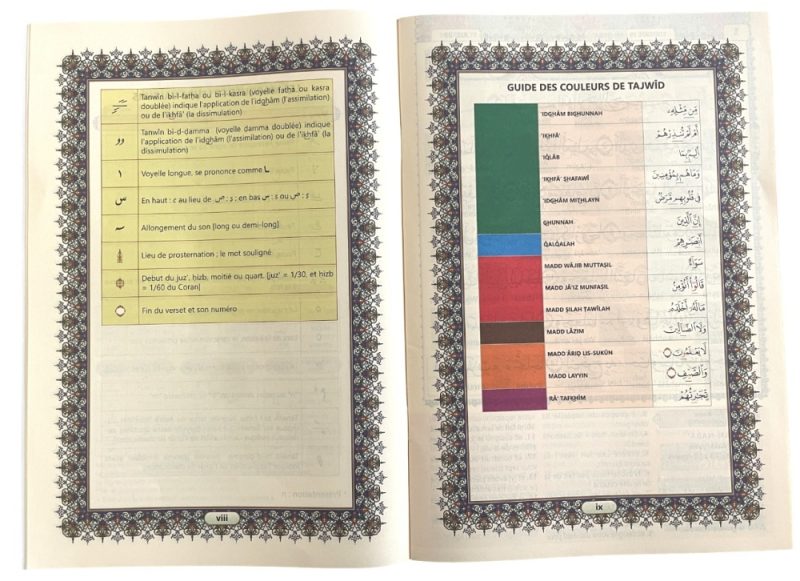 Tanwîn bi-l-fatḥa ou bi-l-kasra (voyelle fatḥa ou kasra
doublée) indique l'application de l'idghâm (l'assimilation)
ou de l'ikhfâ' (la dissimulation)
Tanwîn bi-ḍ-ḍamma (voyelle ḍamma doublée) indique
l'application de l'idghâm (l'assimilation) ou de l'ikhfâ' (la
dissimulation)
Voyelle longue, se prononce comme
س
En haut : س au lieu de ص ; en bas ou
Allongement du son (long ou demi-long)
Lieu de prosternation ; le mot souligné
Debut du juz', hizb, moitié ou quart. (juz' = 1/30, et hizb
= 1/60 du Coran)
Fin du verset et son numéro
viii
GUIDE DES COULEURS DE TAJWÎD
'IDGHÂM BIGHUNNAH مِن مِّثْلِهِۦ
'IKHFÂ' أَمْ لَمْ تُنذِرْهُمْ
'IQLÂB أَلِيمٌۢ بِمَا
'IKHFÂ' SHAFAWÎ وَمَا هُم بِمُؤْمِنِينَ
'IDGHÂM MITHLAYN فِى قُلُوبِهِم مَّرَضٌ
GHUNNAH إِنَّ ٱلَّذِينَ
QALQALAH أَبْصَٰرِهِمْ
MADD WÂJIB MUTTAṢIL سَوَآءٌ
MADD JÂ'IZ MUNFAṢIL قَالُوٓا۟ أَنُؤْمِنُ
MADD ṢILAH ṬAWÎLAH مَالَهُۥٓ أَخْلَدَهُۥ
MADD LÂZIM وَلَا ٱلضَّآلِّينَ
MADD ÂRIḌ LIS-SUKÛN لَا يَعْلَمُونَ
MADD LAYYIN وَٱلصَّيْفِ
RÂ' TAFKHÎM تِّجَٰرَتُهُمْ
ix